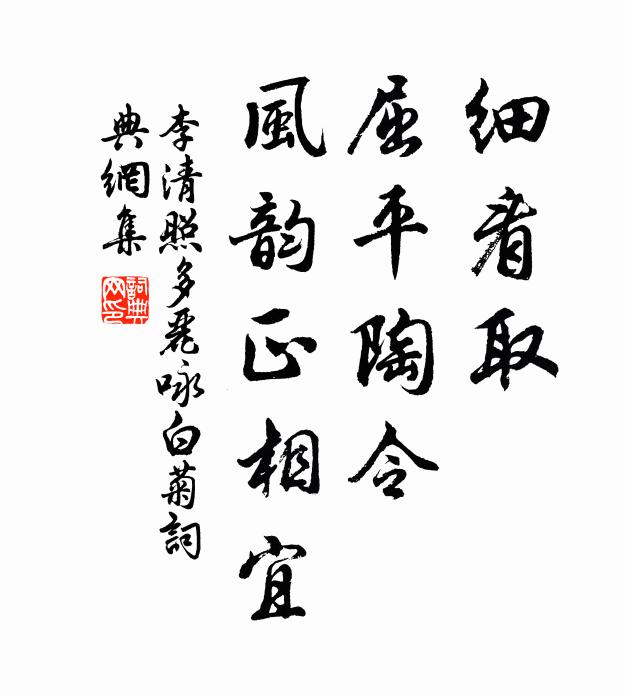 细看取
屈平陶令
風韵正相宜
李清照多麗咏白菊詞
典網集
詞典网印